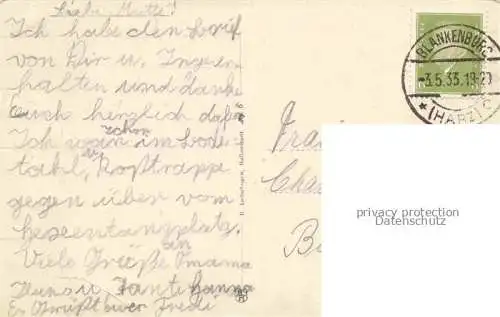 Liebe Mutti!
Ich habe den Brief
von Dir u. Inge er
halten und danke
Euch herzlich dafür
Ich war schon im Bode-
tahl, Roßtrappe
gegen über vom
hexentanzplatz.
Viele Grüße an Omama
u. Tante Hanna
Es Grüßt euer Fredi
BLANKENBURG
-3.5.33.19-20
* (HARZ) C
Frau
privacy protection
Datenschutz